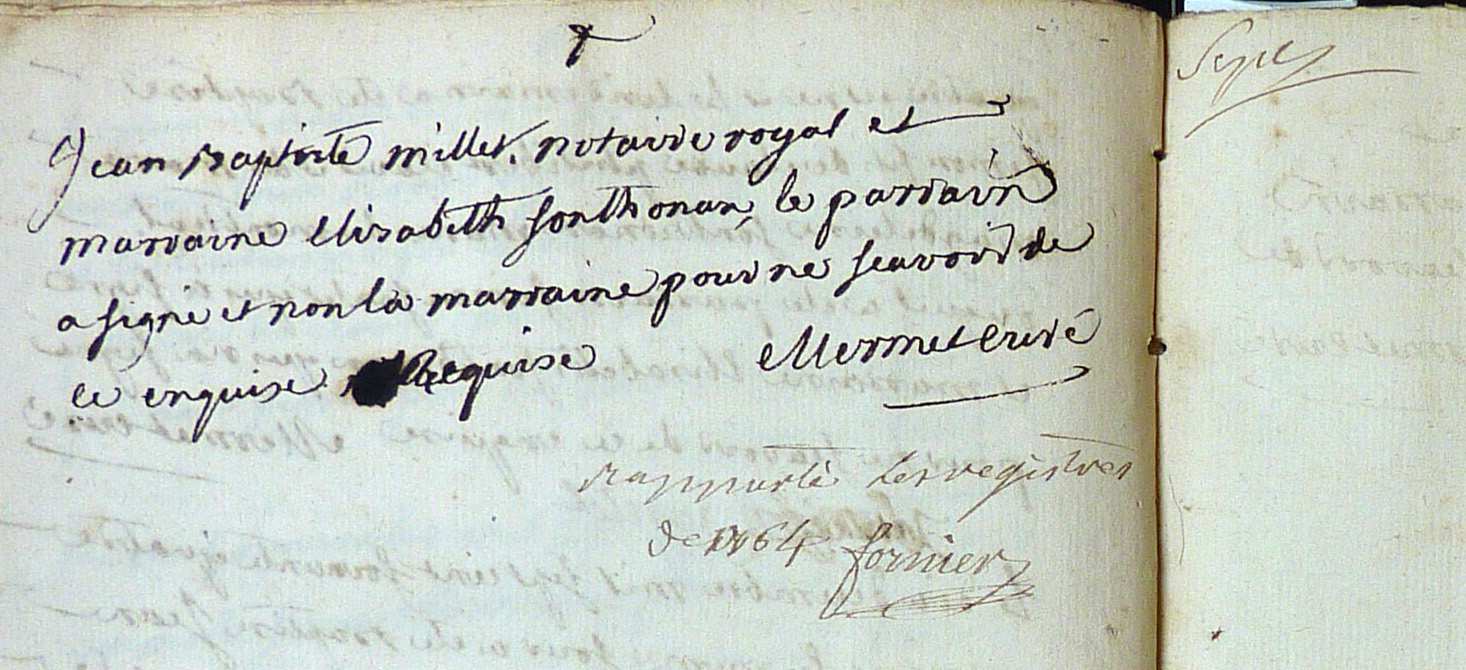 Jean Baptiste millet, notaire royal et
marraine elisabeth sonthonax, le parrain
a signé et non la marraine pour ne scavoir de
ce enquise Requise Mermet curé
rapporté les registres
de 1764 fornier
Sept